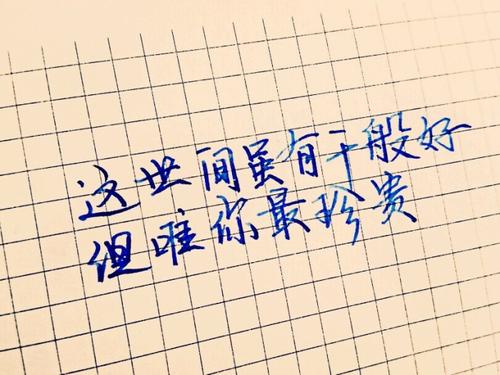 这世间虽有千般好
但唯你最珍贵